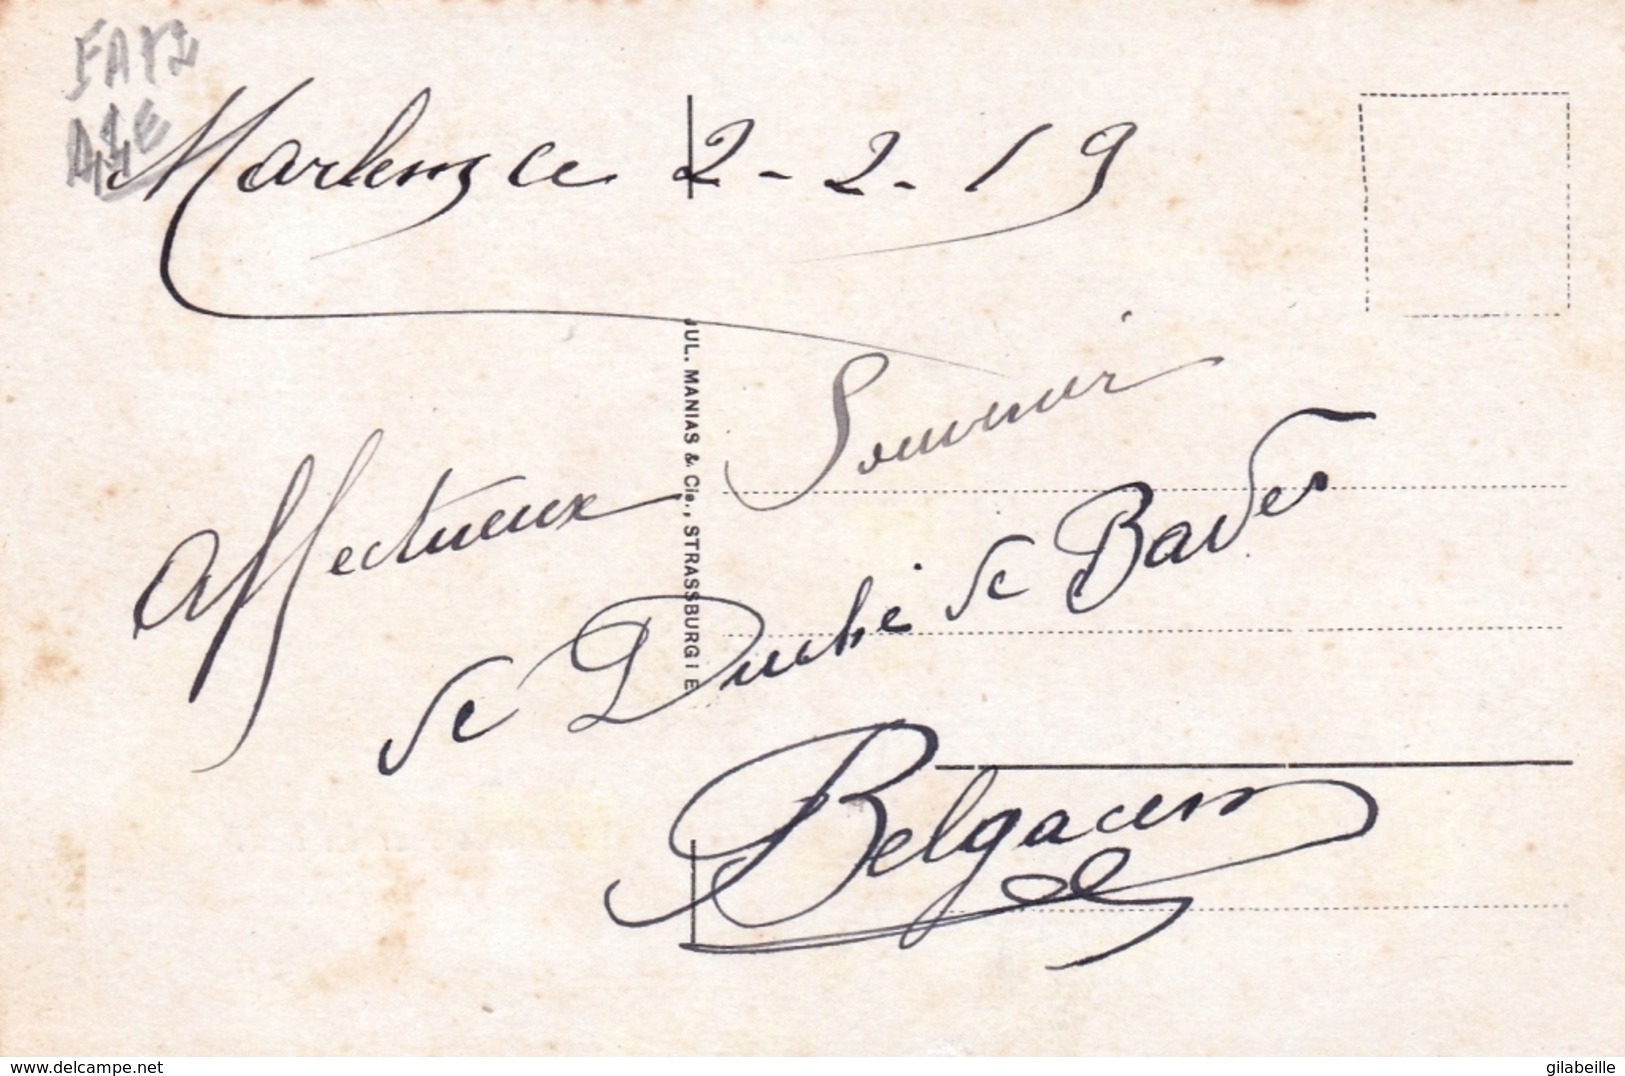 Marlenz ce 2-2-19
Affectueux Souvenir
de Duché de Baden
Belgacem
JUL. MANIAS & Cie., STRASSBURG i E
www.delcampe.net
gilabeille